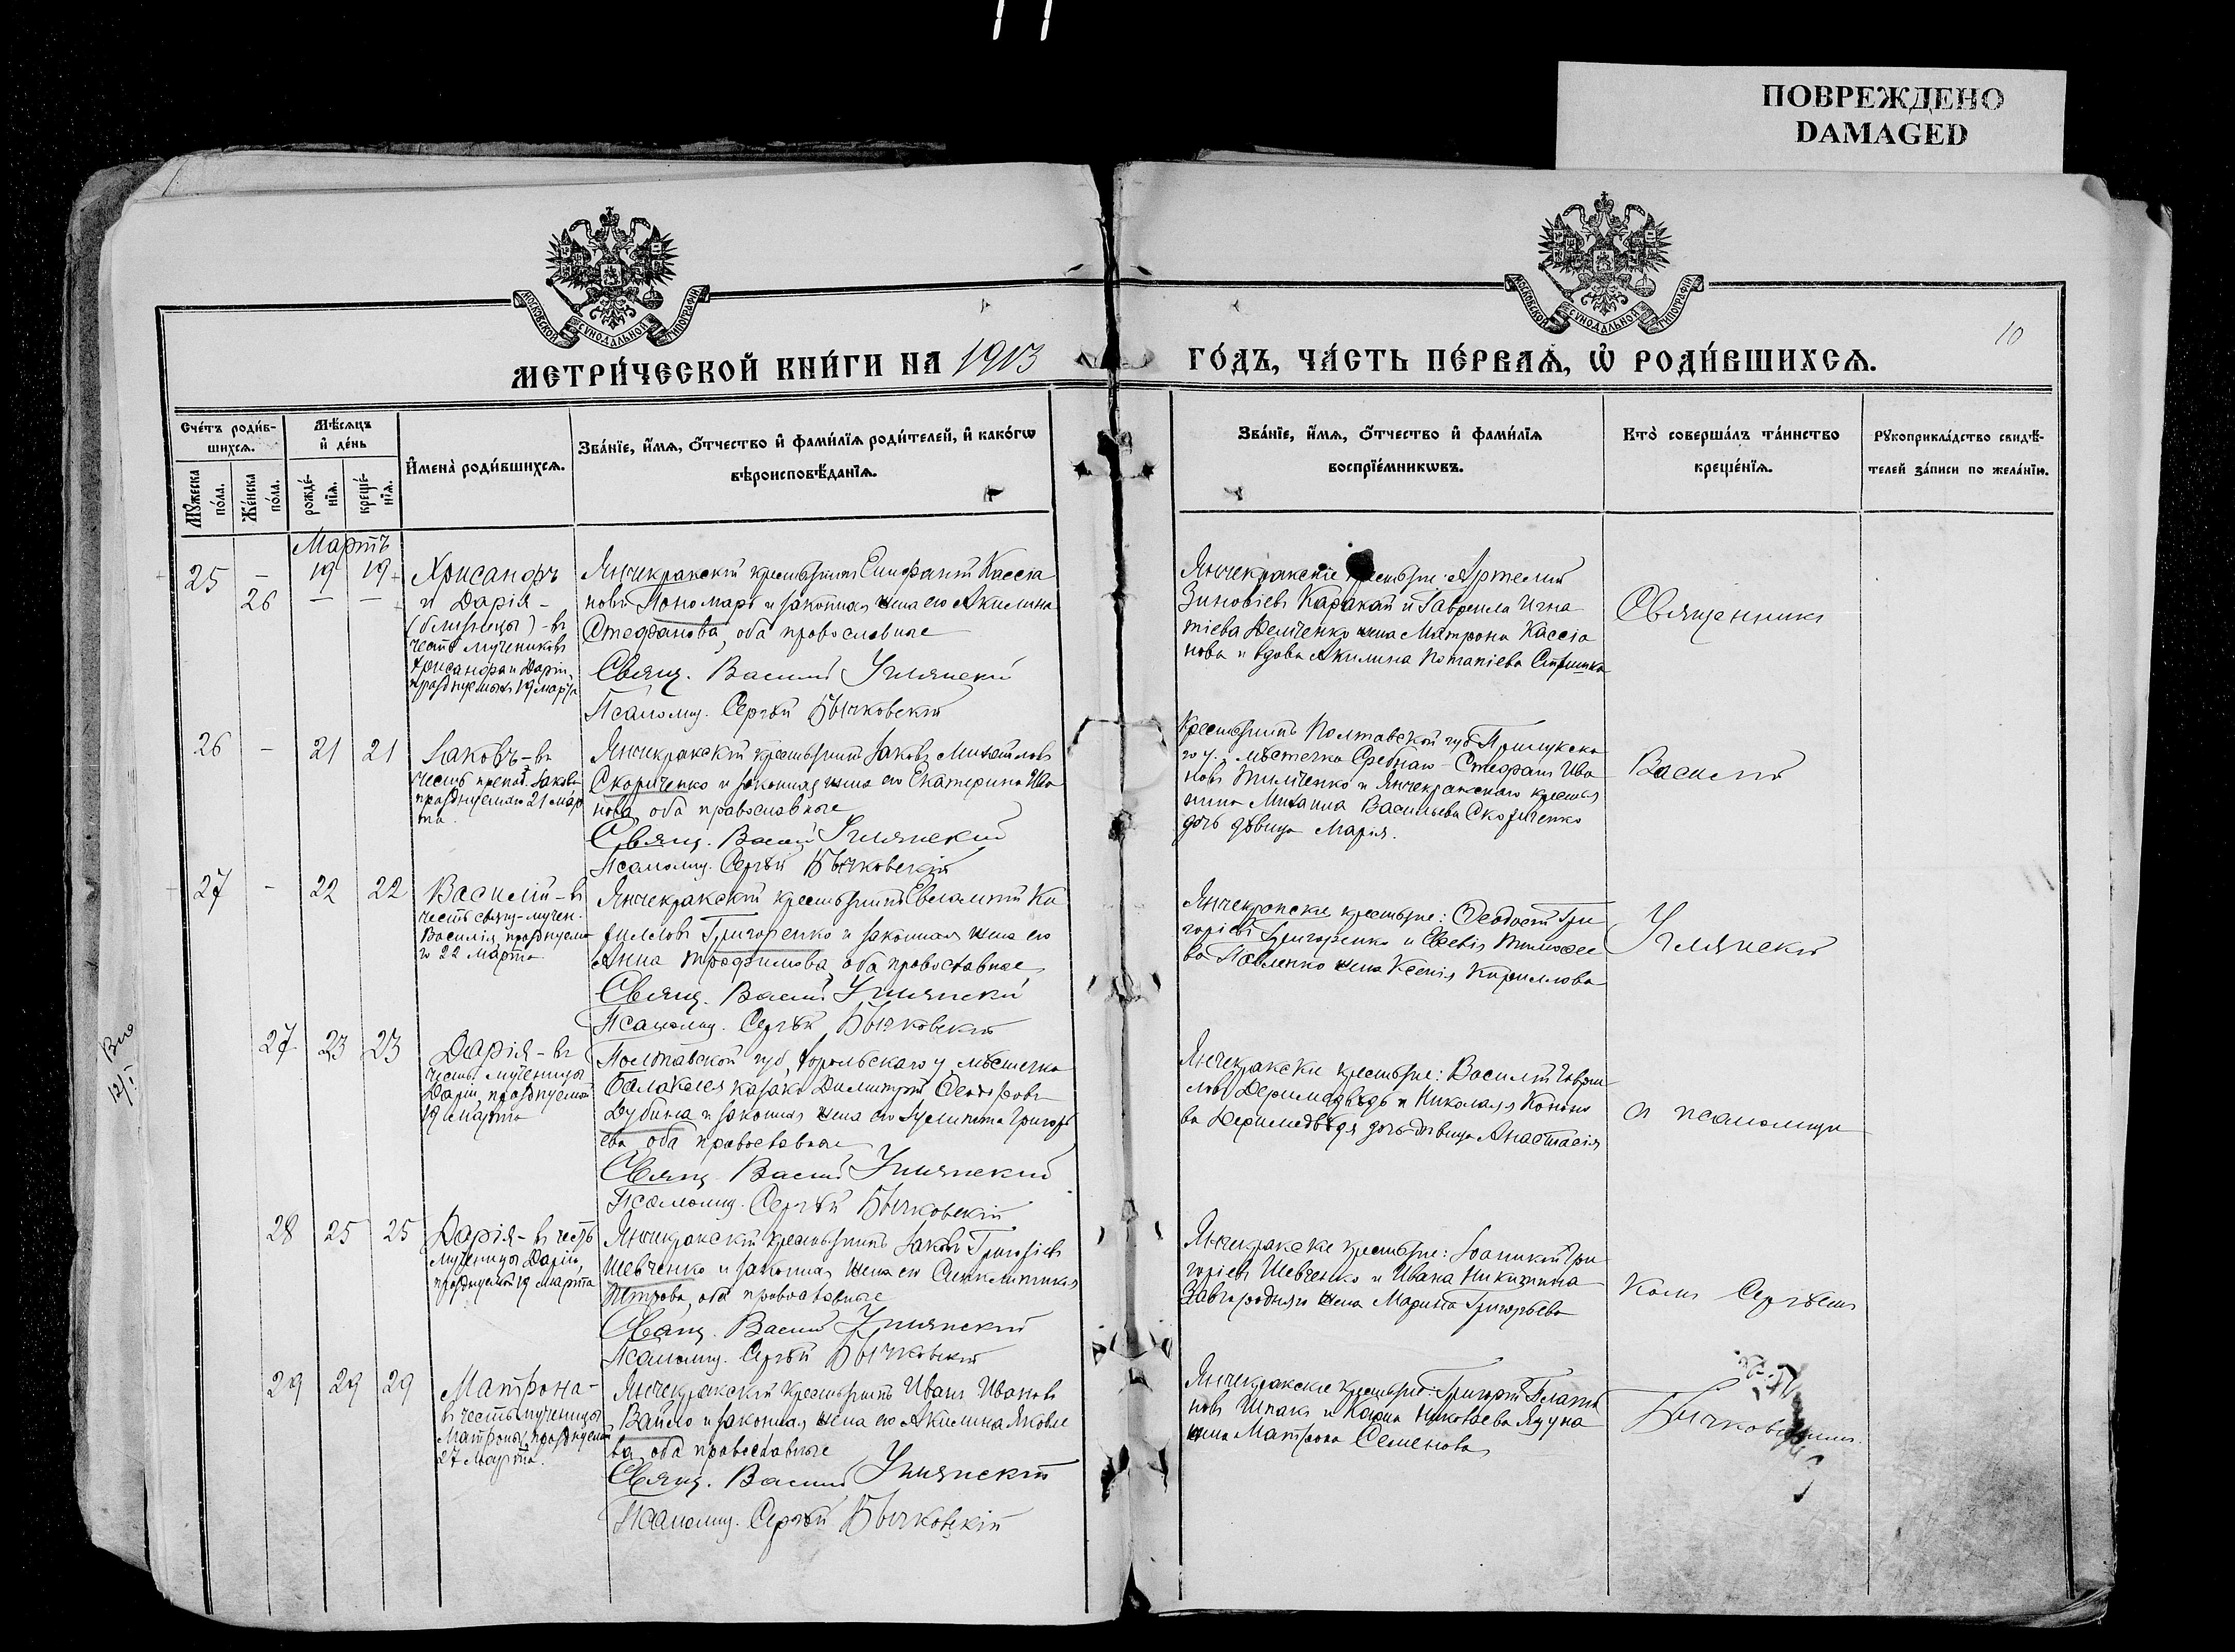 ПОВРЕЖДЕНО
DAMAGED
МОСКОВСКОЙ СѴНОДАЛЬНОЙ ТИПОГРАФІИ
МОСКОВСКОЙ СѴНОДАЛЬНОЙ ТИПОГРАФІИ
10
МЕТРИ́ЧЕСКОЙ КНИ́ГИ НА 1913
ГО́ДЪ, ЧА́СТЬ ПЕ́РВАѦ, Ѡ҆ РОДИ́ВШИХСѦ.
Сче́тъ роди́в-
шихсѧ.
Мѣ́сѧцъ
и҆ де́нь
Мꙋ́жеска по́ла.
Же́нска по́ла.
рожде́-
нїѧ.
креще́-
нїѧ.
И҆мена̀ роди́вшихсѧ.
Зва́нїе, и҆́мѧ, ѻ҆́тчество и҆ фами́лїѧ роди́телей, и҆ како́гѡ
вѣроисповѣ́данїѧ.
Зва́нїе, и҆́мѧ, ѻ҆́тчество и҆ фами́лїѧ
воспрїе́мникѡвъ.
Кто̀ соверша́лъ та́инство
креще́нїѧ.
Рꙋкоприкла́дство свидѣ́-
телей за́писи по жела́нїю.
Мартъ
25 – 19 19
26 – –
Хрисанфъ
и Дарія –
(близнецы) – въ
честь мучениковъ
Хрисанфа и Даріи,
празднуемыхъ 19 марта
Янчекракскій крестьянинъ Епифаній Кассіа
новъ Пономарь и законная жена его Акилина
Стефанова, оба православные
Свящ. Василій Углянскій
Псаломщ. Сергѣй Бычковскій
Янчекракскіе крестьяне: Артемій
Зиновіевъ Каракай и Гавріила Игна
тіева Демченко жена Матрона Кассіа
нова и вдова Акилина Потапіева
Священникъ
26 – 21 21
Іаковъ – въ
честь препод. Іакова
празднуемаго 21 мар
та.
Янчекракскій крестьянинъ Іаковъ Михайловъ
Скориченко и законная жена его Екатерина Ива
нова, оба православные
Свящ. Василій Углянскій
Псаломщ. Сергѣй Бычковскій
Крестьянинъ Полтавской губ. Прилукска
го у. мѣстечка Сребнаго Стефанъ Ива
новъ и Янчекракскаго крестья
нина Михаила Васильева Скориченко
дочь дѣвица Марія.
Василій
27 – 22 22
Василій – въ
честь свящ-мучен.
Василія, празднуема
го 22 марта
Янчекракскій крестьянинъ Евлампій Ки
рилловъ Григоренко и законная жена его
Анна Трофимова, оба православные
Свящ. Василій Углянскій
Псаломщ. Сергѣй Бычковскій
Янчекракскіе крестьяне: Ѳеодосій Гри
горіевъ Григоренко и Евсевія Тимоѳее
ва Павленко жена Ксенія Кириллова
Углянскій
27 23 23
Дарія – въ
честь мученицы
Даріи, празднуемой
19 марта
Полтавской губ, Хорольскаго у, мѣстечка
Балаклея казакъ Димитрій Ѳеодоровъ
Дубина и законная жена его Григорь
ева, оба православные
Свящ. Василій Углянскій
Псаломщ. Сергѣй Бычковскій
Янчекракскіе крестьяне: Василій Гаврии
ловъ Деримедвѣдь и Николая Конона
ва Деримедвѣдя дочь-дѣвица Анастасія
съ псаломщи
28 25 25
Дарія – въ честь
мученицы Даріи,
празднуемой 19 марта
Янчекракскій крестьянинъ Іаковъ Григоріевъ
Шевченко и законная жена его Синклитикія
Петрова, оба православные
Свящ. Василій Углянскій
Псаломщ. Сергѣй Бычковскій
Янчекракскіе крестьяне: Іоанникій Гри
горіевъ Шевченко и Ивана Никитина
Завгородняго жена Марина Григорьева
комъ Сергѣемъ
29 29 29
Матрона –
въ честь мученицы
Матроны, празднуемой
27 марта.
Янчекракскій крестьянинъ Иванъ Ивановъ
Вайло и законная жена его Акилина Яковле
ва, оба православные
Свящ. Василій Углянскій
Псаломщ. Сергѣй Бычковскій
Янчекракскіе крестьяне: Григорій Плато
новъ Шпакъ и Николаева
жена Матрона Семенова
Бычковскимъ.